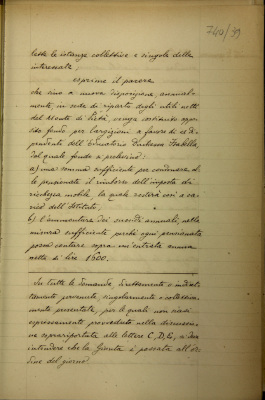 740/39
lette le istanze collettive e singole delle
interessate,
esprime il parere
che sino a nuova disposizione, annual-
mente, in sede di riparto degli utili netti
del Monte di Pietà, venga costituito appo-
sito fondo per largizioni a favore di ex di-
pendenti dell'Educatorio Duchessa Isabella,
dal quale fondo si prelevino:
a) una somma sufficiente per condonare al-
le pensionate il rimborso dell'imposta di
ricchezza mobile la quale resterà così a ca-
rico dell'Istituto.
b) l'ammontare dei sussidi annuali, nella
misura sufficiente perchè ogni pensionata
possa contare sopra un'entrata annua
netta di lire 1600.
In tutte le domande, direttamente o indiret-
tamente pervenute, singolarmente o collettiva-
mente presentate, per le quali non siasi
espressamente provveduto nella discussio-
ne soprariportata alle lettere C, D, E, si deve
intendere che la Giunta è passata all'or-
dine del giorno.